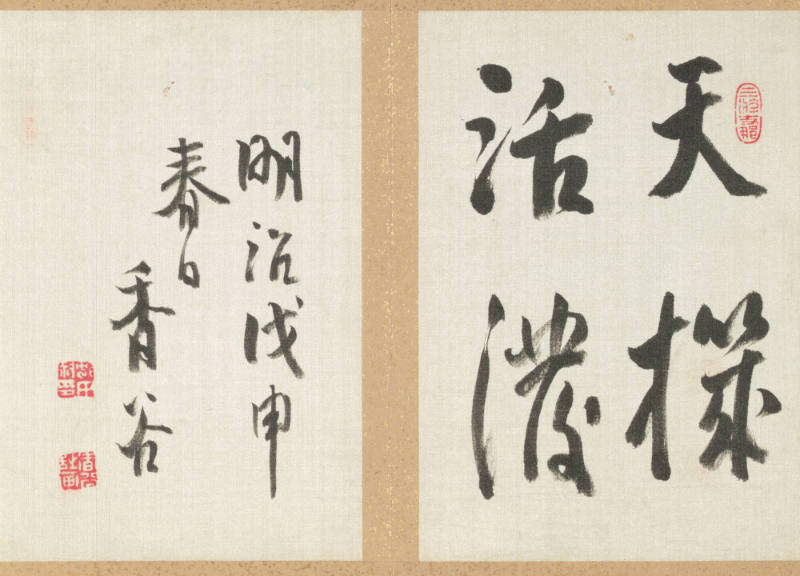 天機
活潑
明治戊申
春日
香谷